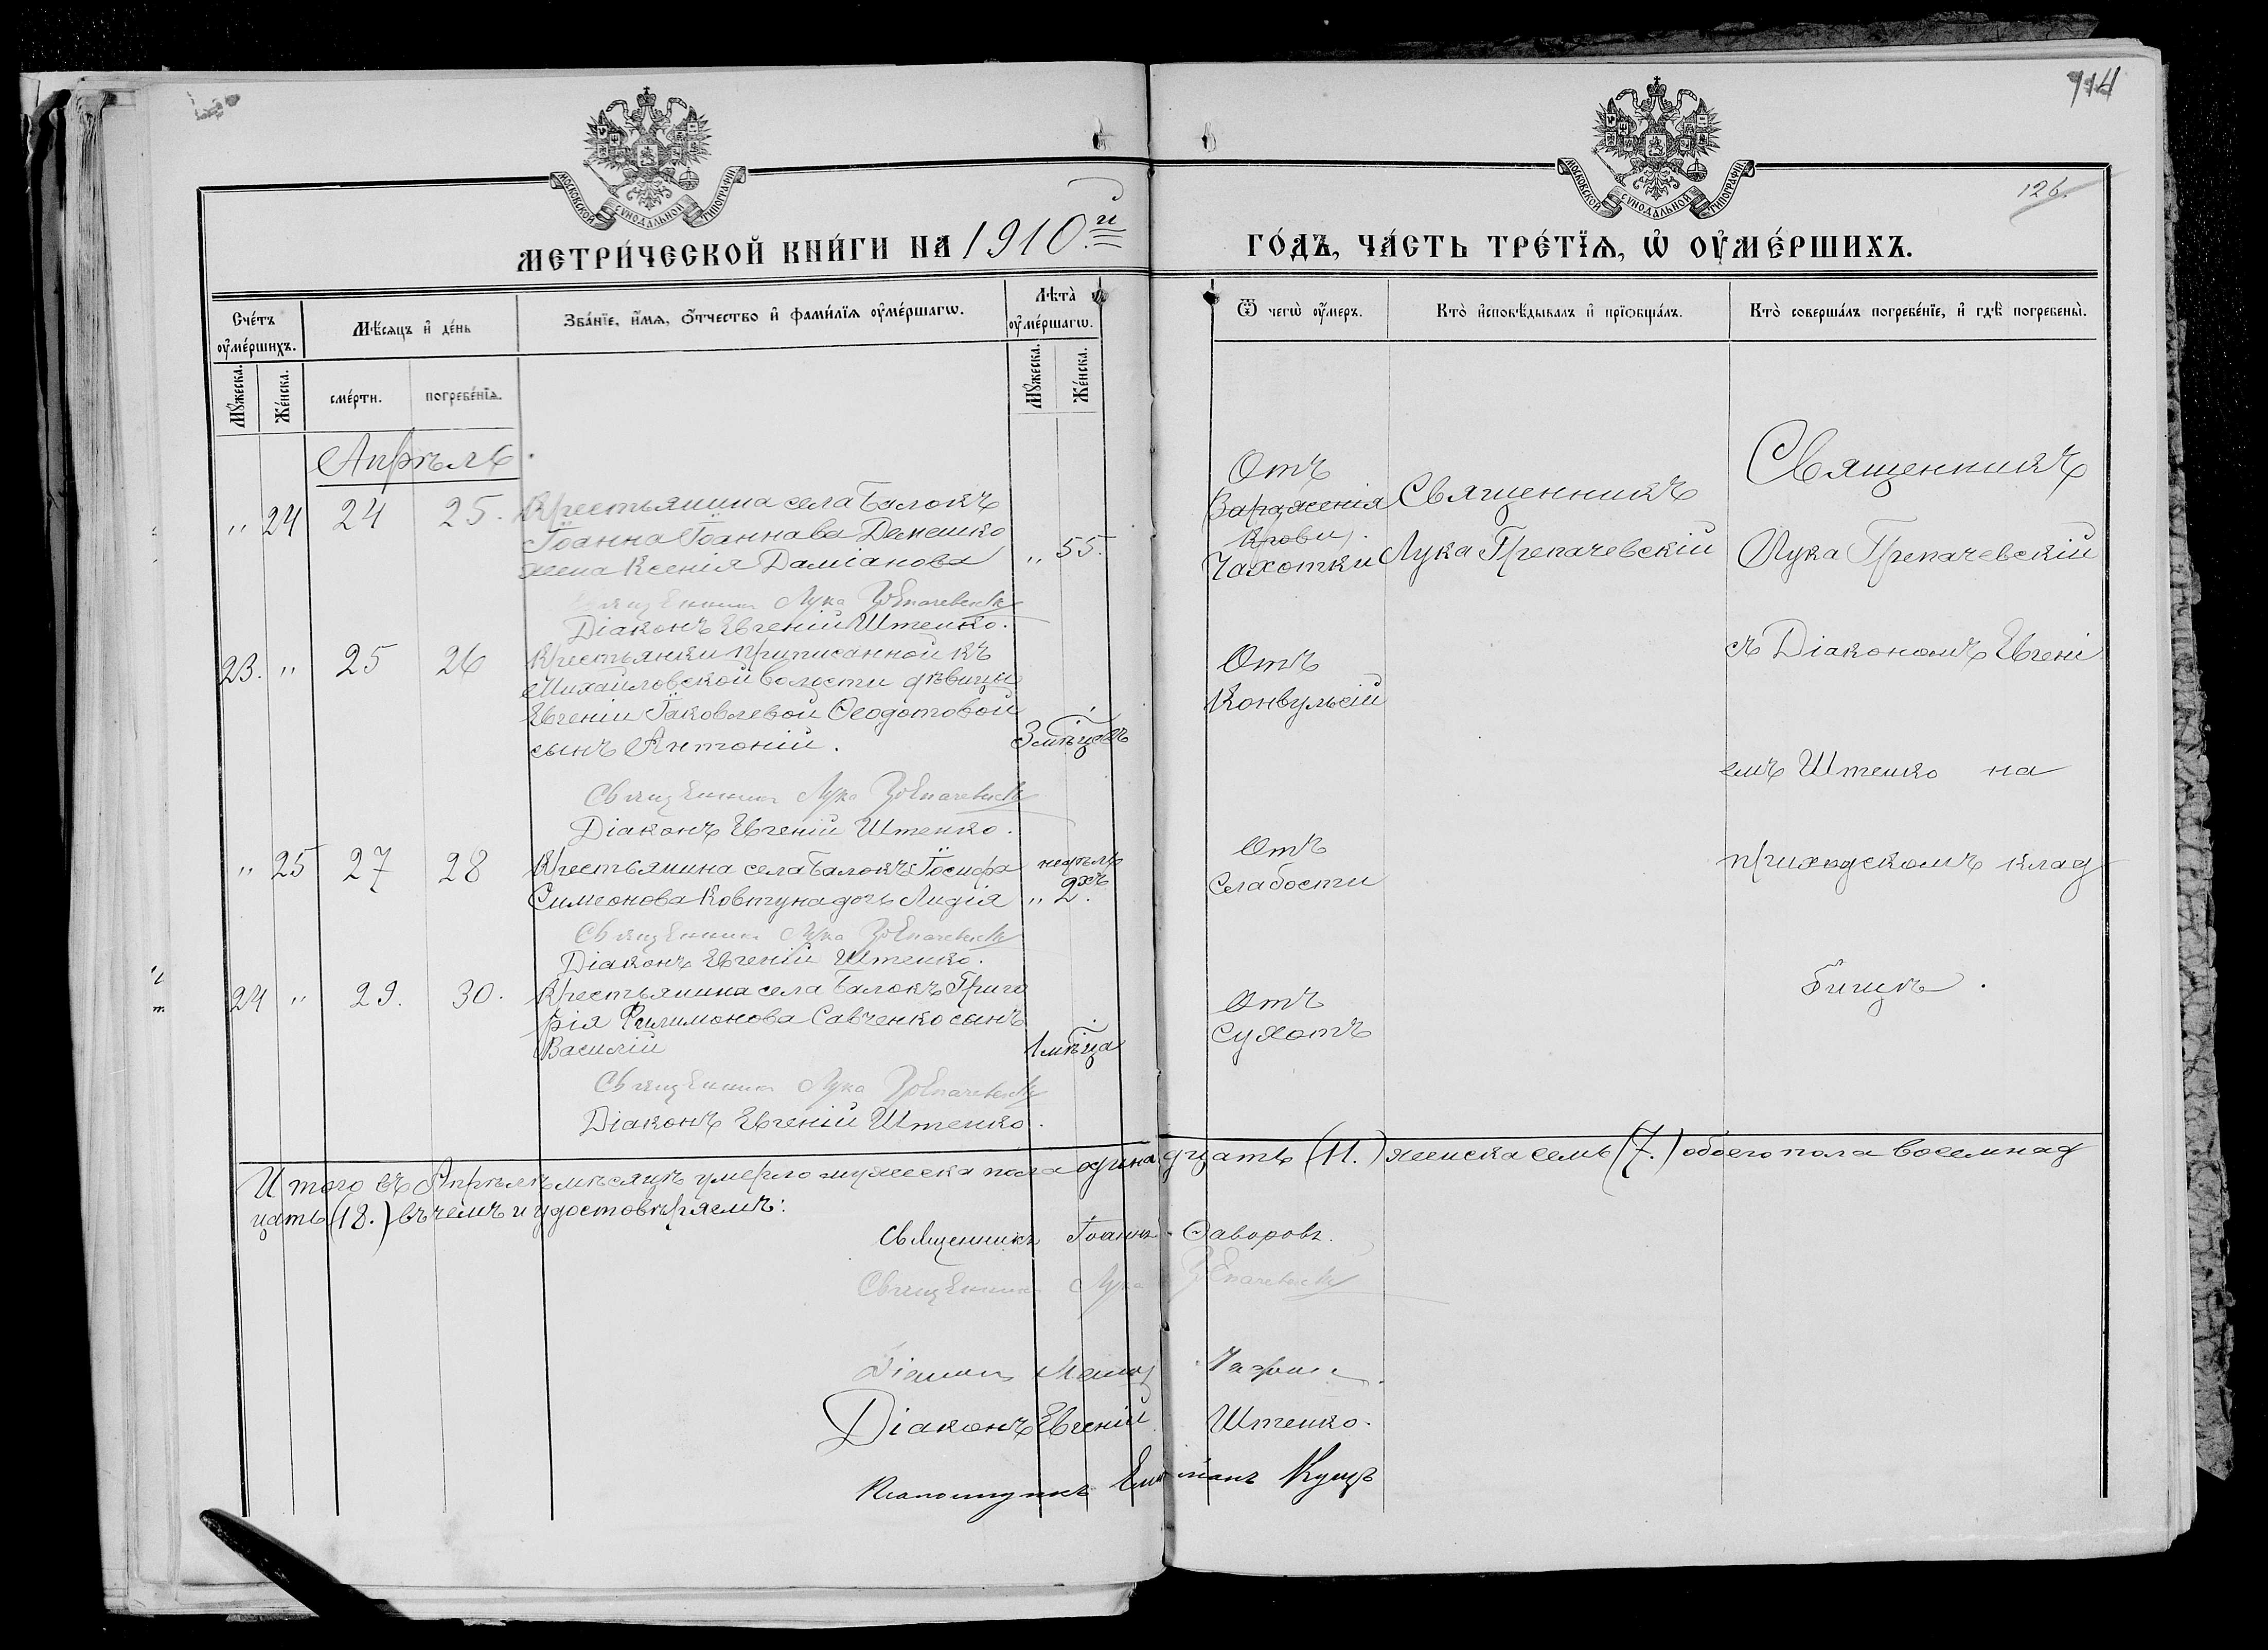 114
126
МОСКОВСКОЙ СѴНОДАЛЬНОЙ ТИПОГРАФІИ
МОСКОВСКОЙ СѴНОДАЛЬНОЙ ТИПОГРАФІИ
МЕТРИ́ЧЕСКОЙ КНИ́ГИ НА 1910.й
ГО́ДЪ, ЧА́СТЬ ТРЕ́ТЇѦ, Ѡ҆ ОУ҆МЕ́РШИХЪ.
Сче́тъ оу҆ме́ршихъ.
Мꙋ́жеска.
Же́нска.
Мѣ́сѧцъ и҆ де́нь
сме́рти.
погребе́нїѧ.
Зва́нїе, и҆́мѧ, ѻ҆́тчество и҆ фами́лїѧ оу҆ме́ршагѡ.
Лѣта̀ оу҆ме́ршагѡ.
Мꙋ́жеска.
Же́нска.
Ѿ чегѡ̀ оу҆́меръ.
Кто̀ и҆сповѣ́дывалъ и҆ прїѻбща́лъ.
Кто̀ соверша́лъ погребе́нїе, и҆ гдѣ̀ погребены̀.
Апрѣль.
" 24 24 25.
Крестьянина села Балокъ
Іоанна Іоаннова Демешко
жена Ксенія Даміанова
" 55.
Отъ
Зараженія
крови.
Чахотки
Священникъ
Лука Грепачевскій
Священникъ
Лука Грепачевскій
Священникъ Лука
Діаконъ Евгеній Штепко.
23. " 25 26
Крестьянки приписанной къ
Михайловской волости дѣвицы
Евгеніи Іаковлевой Ѳеодотовой
сынъ Антоній.
3 мѣсцевъ
Отъ
Конвульсій
съ Діакономъ Евгені
емъ Штепко на
Священникъ Лука
Діаконъ Евгеній Штепко.
" 25 27 28
Крестьянина села Балокъ Іосифа
Симеонова Ковтуна дочь Лидія
недѣль
" 2хъ.
Отъ
Слабости
приходскомъ клад
Священникъ Лука
Діаконъ Евгеній Штепко.
24 " 29. 30.
Крестьянина села Балокъ Григо
рія Филимонова Савченко сынъ
Василій
1 мѣсца
Отъ
Сухотъ
бищѣ.
Священникъ Лука
Діаконъ Евгеній Штепко.
Итого въ Апрѣлѣ мѣсяцѣ умерло мужеска пола одинадцать (11.) женска семь (7.) обоего пола восемнад
цать (18.) въ чемъ и удостовѣряемъ:
Священникъ Іоаннъ Ѳаворовъ.
Священникъ Лука
Діаконъ
Діаконъ Евгеній Штепко.
Псаломщикъ Емиліанъ Куцъ